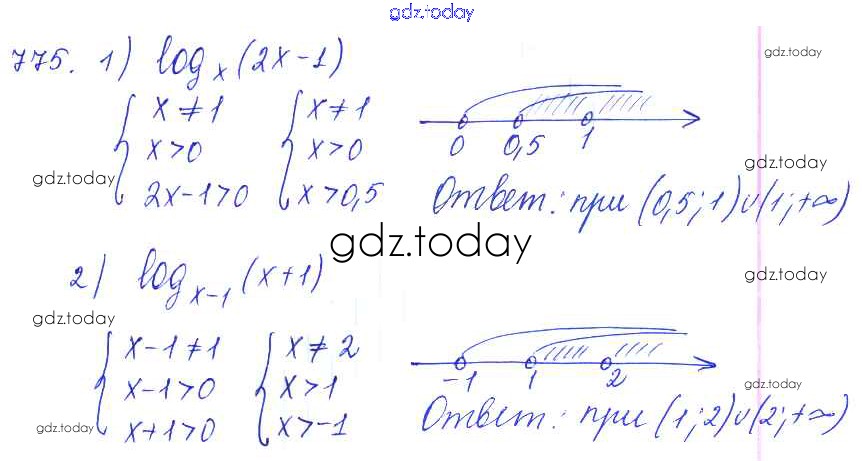 gdz.today
775. 1) log_x (2x-1)
gdz.today
{ x ≠ 1 { x ≠ 1
x > 0 x > 0
2x-1 > 0 x > 0,5
0 0,5 1
gdz.today
gdz.today
Ответ: при (0,5; 1)∪(1; +∞)
gdz.today
2) log_{x-1} (x+1)
gdz.today
gdz.today
{ x-1 ≠ 1 { x ≠ 2
x-1 > 0 x > 1
x+1 > 0 x > -1
-1 1 2
gdz.today
gdz.today
Ответ: при (1; 2)∪(2; +∞)